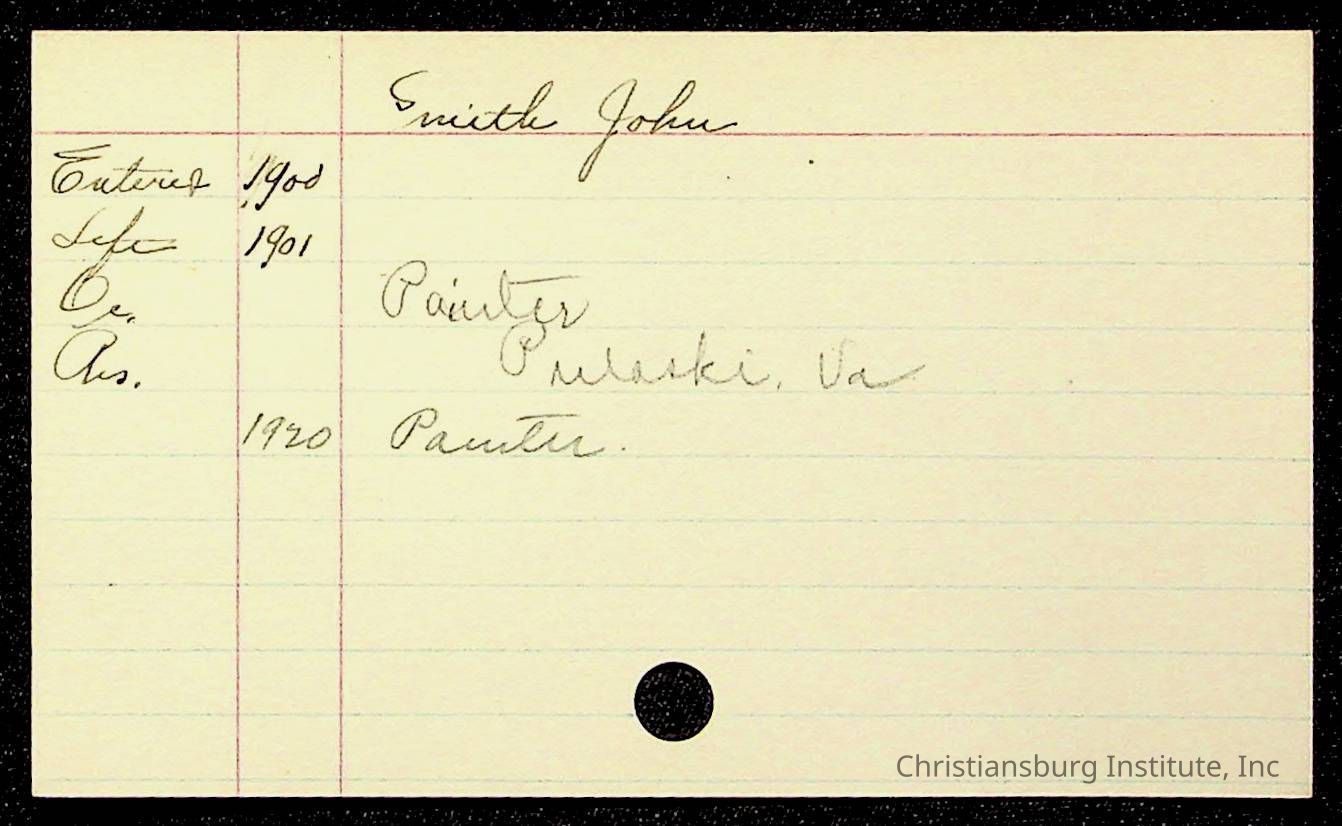 Smith John
Entered 1900
Left 1901
Oc. Painter
Res. Pulaski, Va
1920 Painter.
Christiansburg Institute, Inc